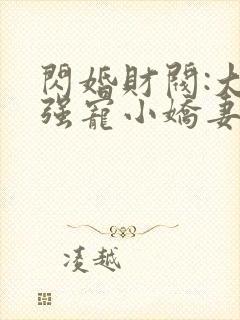 閃婚財閥:大
强寵小嬌妻
凌越